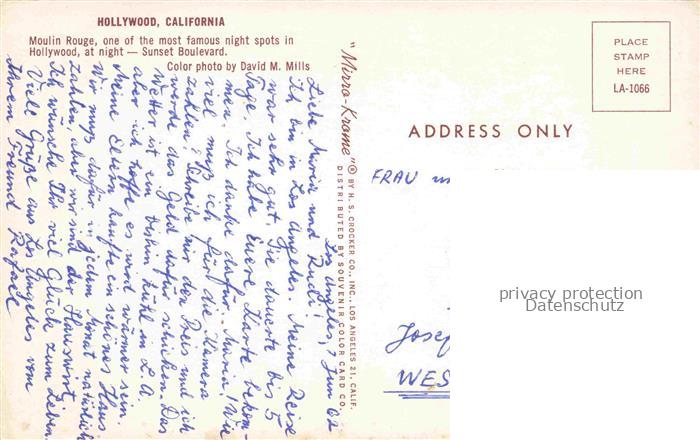 HOLLYWOOD, CALIFORNIA
Moulin Rouge, one of the most famous night spots in
Hollywood, at night — Sunset Boulevard.
Color photo by David M. Mills
Los Angeles, 7 Jun 62
Liebe Maria und Rudi!
Ich bin in Los Angeles. Meine Reise
war sehr gut. Sie dauerte bis 5
Tage. Ich habe Euere Karte bekom-
men. Ich danke dafür. Maria! Wie
viel muß ich für die Kamera
zahlen? Schreibe mir den Preis und ich
werde das Geld dafür schicken. Das
Wetter ist ein bishin kühl in L.A.
aber ich hoffe es wird wärmer sein.
Meine Eltern kaufte ein schönes Haus
Wir muß dafür in jedem Monat natürlich
zahlen, aber wir sind der Hauswirt.
Ich wünsche Ihr viel Glück zum Leben.
Viele Grüße aus Los Angeles vom
Ihrem Freund Rafael
"Mirro-Krome"® BY H. S. CROCKER CO., INC., LOS ANGELES 21, CALIF.
DISTRIBUTED BY SOUVENIR COLOR CARD CO.
PLACE
STAMP
HERE
LA-1066
ADDRESS ONLY
FRAU
privacy protection
Datenschutz
Josef
WES